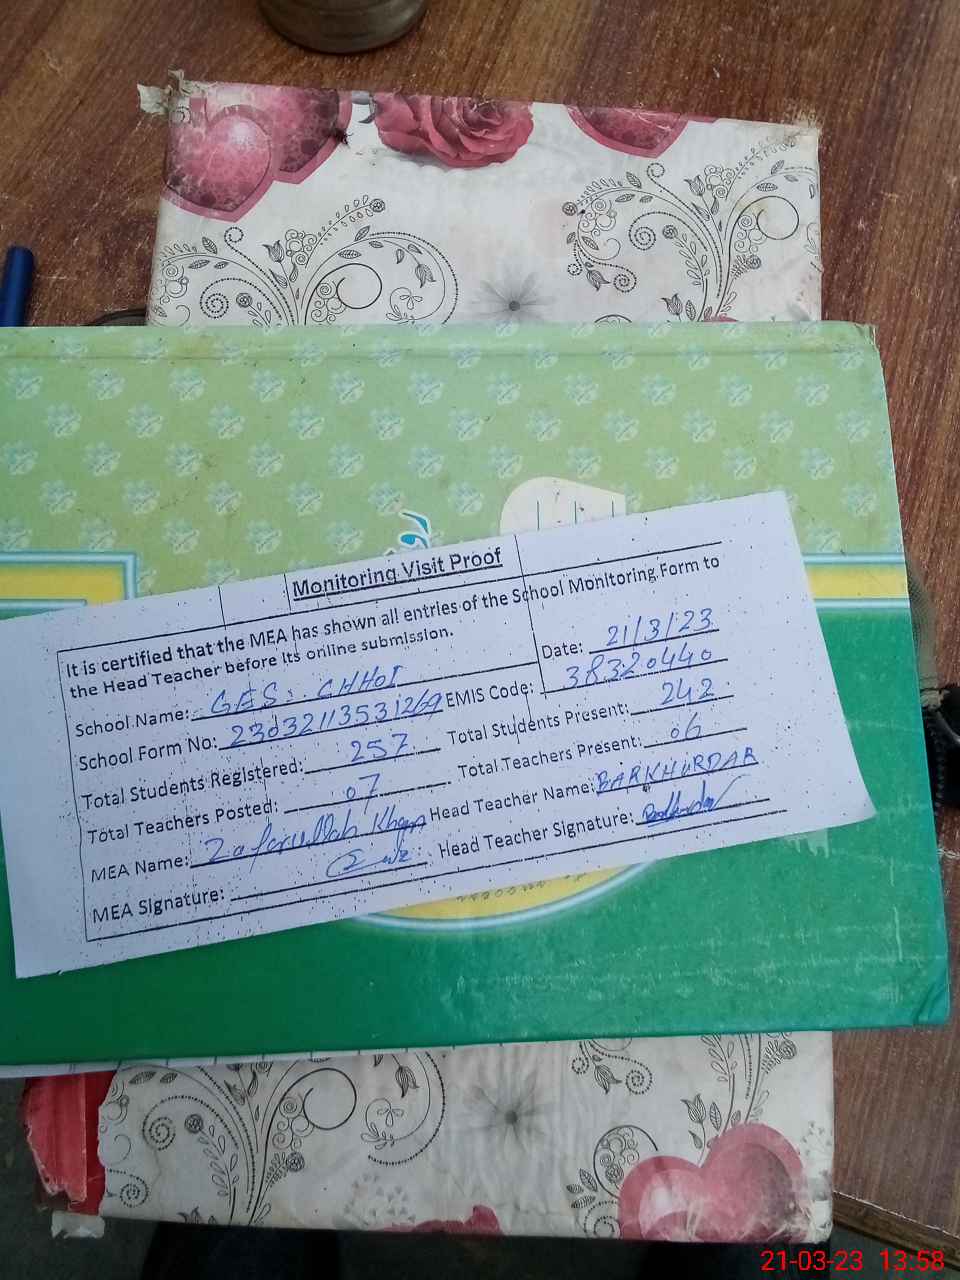 Monitoring Visit Proof
It is certified that the MEA has shown all entries of the School Monitoring Form to
the Head Teacher before its online submission.
Date: 21/3/23
School Name: GES: CHHOI
EMIS Code: 38320440
School Form No: 23032113531269
Total Students Present: 242
Total Students Registered: 257
Total Teachers Present: 06
Total Teachers Posted: 07
Head Teacher Name: BARKHURDAR
MEA Name: Zafarullah Khan
Head Teacher Signature:
MEA Signature:
21-03-23 13:58